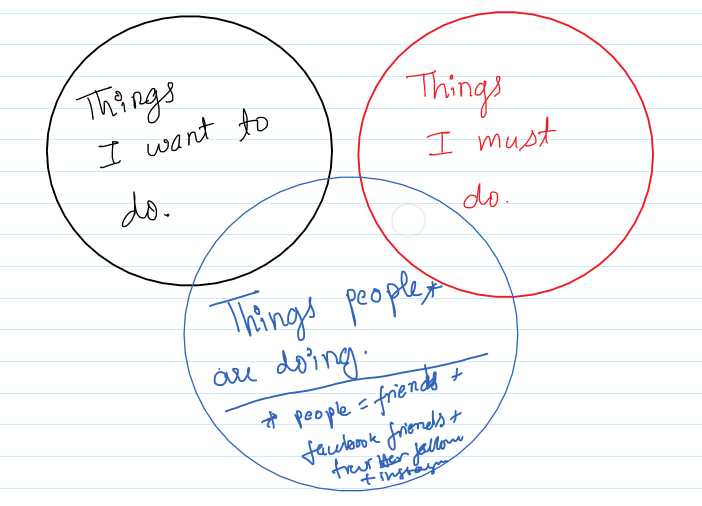 Things
I want to
do.
Things
I must
do.
Things people*
are doing.
* people = friends +
facebook friends +
+ instagram